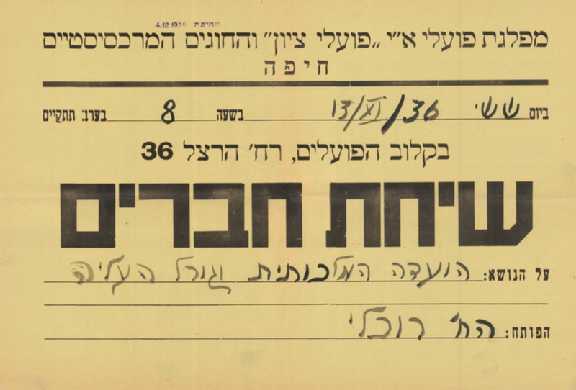 מפלגת פועלי א״י „פועלי ציון״ והחוגים המרכסיסטיים
חיפה
ביום ששי 13/XI/36 בשעה 8 בערב תתקיים
בקלוב הפועלים, רח׳ הרצל 36
שיחת חברים
על הנושא: הועדה המלכותית וגורל העליה
הפותח: הח׳ רוכלי